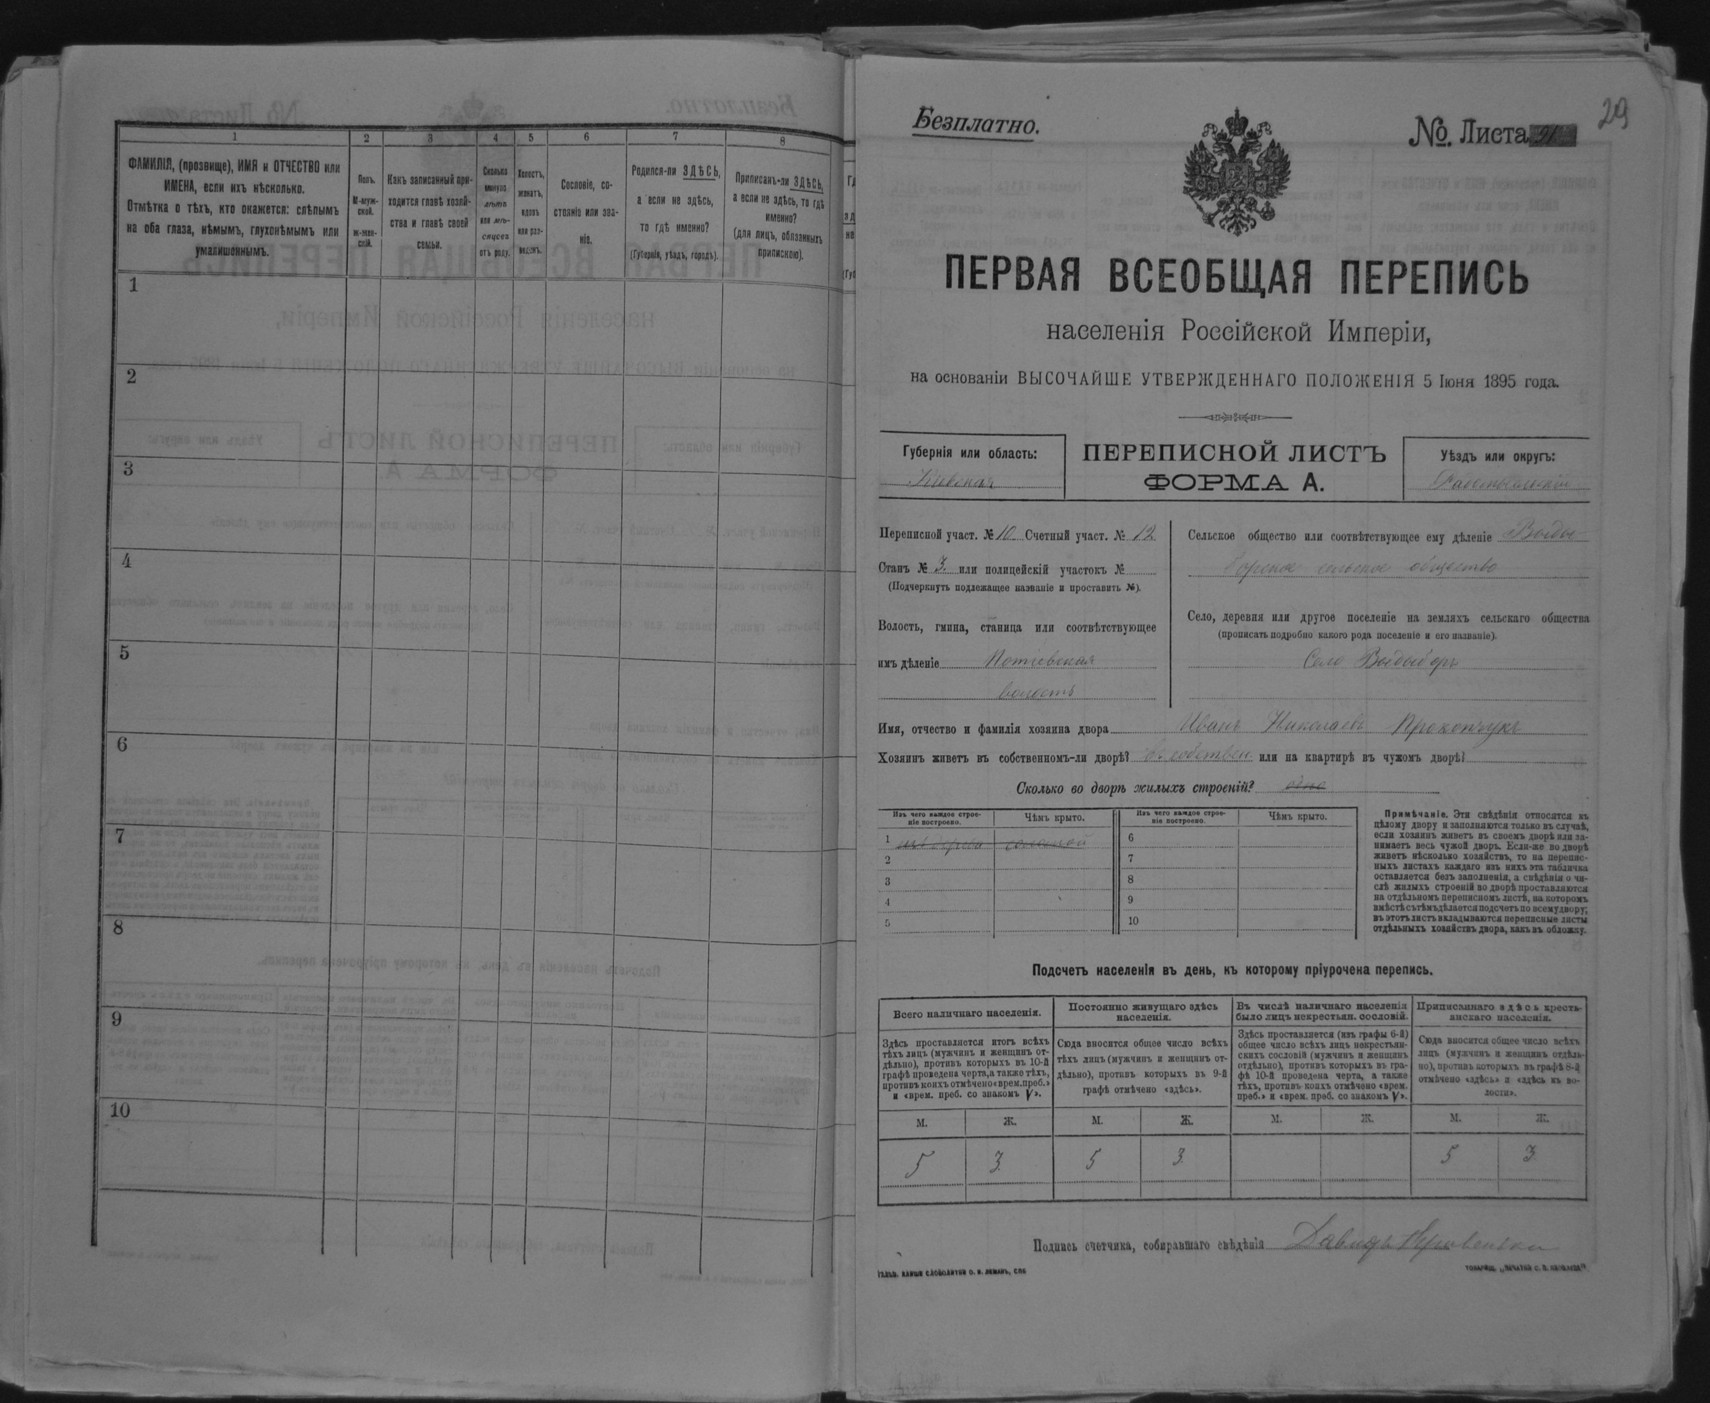 1
2
3
4
5
6
7
8
ФАМИЛІЯ, (прозвище), ИМЯ и ОТЧЕСТВО или
ИМЕНА, если ихъ нѣсколько.
Отмѣтка о тѣхъ, кто окажется: слѣпымъ
на оба глаза, нѣмымъ, глухонѣмымъ или
умалишеннымъ.
Полъ.
М-муж-
ской.
Ж-жен-
скій.
Какъ записанный при-
ходится главѣ хозяй-
ства и главѣ своей
семьи.
Сколько
минуло
лѣтъ
или мѣ-
сяцевъ
отъ роду.
Холостъ,
женатъ,
вдовъ
или раз-
веденъ.
Сословіе, со-
стояніе или зва-
ніе.
Родился-ли ЗДѢСЬ,
а если не здѣсь,
то гдѣ именно?
(Губернія, уѣздъ, городъ).
Приписанъ-ли ЗДѢСЬ,
а если не здѣсь, то гдѣ
именно?
(для лицъ, обязанныхъ
припискою).
1
2
3
4
5
6
7
8
9
10
29
Безплатно.
№. Листа
ПЕРВАЯ ВСЕОБЩАЯ ПЕРЕПИСЬ
населенія Россійской Имперіи,
на основаніи ВЫСОЧАЙШЕ УТВЕРЖДЕННАГО ПОЛОЖЕНІЯ 5 Іюня 1895 года.
Губернія или область:
Кіевская
ПЕРЕПИСНОЙ ЛИСТЪ
ФОРМА А.
Уѣздъ или округъ:
Переписной участ. № 10 Счетный участ. № 12
Станъ № 3. или полицейскій участокъ №
(Подчеркнуть подлежащее названіе и проставить №).
Волость, гмина, станица или соотвѣтствующее
имъ дѣленіе Потіевская
волость
Сельское общество или соотвѣтствующее ему дѣленіе Выды-
борское сельское общество
Село, деревня или другое поселеніе на земляхъ сельскаго общества
(прописать подробно какого рода поселеніе и его названіе).
Село Выдыборъ
Имя, отчество и фамилія хозяина двора Иванъ Николаевъ Прокопчукъ
Хозяинъ живетъ въ собственномъ-ли дворѣ? въ собствен или на квартирѣ въ чужомъ дворѣ?
Сколько во дворѣ жилыхъ строеній? одно
Изъ чего каждое строе-
ніе построено.
Чѣмъ крыто.
Изъ чего каждое строе-
ніе построено.
Чѣмъ крыто.
1 изъ дерева соломой
2
3
4
5
6
7
8
9
10
Примѣчаніе. Эти свѣдѣнія относятся къ
цѣлому двору и заполняются только въ случаѣ,
если хозяинъ живетъ въ своемъ дворѣ или за-
нимаетъ весь чужой дворъ. Если-же во дворѣ
живетъ нѣсколько хозяйствъ, то на перепис-
ныхъ листахъ каждаго изъ нихъ эта табличка
оставляется безъ заполненія, а свѣдѣнія о чи-
слѣ жилыхъ строеній во дворѣ проставляются
на отдѣльномъ переписномъ листѣ, на которомъ
вмѣстѣ съ тѣмъ дѣлается подсчетъ по всему двору;
въ этотъ листъ вкладываются переписные листы
отдѣльныхъ хозяйствъ двора, какъ въ обложку.
Подсчетъ населенія въ день, къ которому пріурочена перепись.
Всего наличнаго населенія.
Постоянно живущаго здѣсь
населенія.
Въ числѣ наличнаго населенія
было лицъ некрестьян. сословій.
Приписаннаго здѣсь кресть-
янскаго населенія.
Здѣсь проставляется итогъ всѣхъ
тѣхъ лицъ (мужчинъ и женщинъ от-
дѣльно), противъ которыхъ въ 10-й
графѣ проведена черта, а также тѣхъ,
противъ коихъ отмѣчено «врем. преб.»
и «врем. преб. со знакомъ V».
Сюда вносится общее число всѣхъ
тѣхъ лицъ (мужчинъ и женщинъ от-
дѣльно), противъ которыхъ въ 9-й
графѣ отмѣчено «здѣсь».
Здѣсь проставляется (изъ графы 6-й)
общее число всѣхъ лицъ некрестьян-
скихъ сословій (мужчинъ и женщинъ
отдѣльно), противъ которыхъ въ гра-
фѣ 10-й проведена черта, а также
тѣхъ, противъ коихъ отмѣчено «врем.
преб.» и «врем. преб. со знакомъ V».
Сюда вносится общее число всѣхъ
лицъ (мужчинъ и женщинъ отдѣль-
но), противъ которыхъ въ графѣ 8-й
отмѣчено «здѣсь» и «здѣсь въ во-
лости».
М. Ж. М. Ж. М. Ж. М. Ж.
5 3 5 3 5 3
Подпись счетчика, собиравшаго свѣдѣнія Давидъ